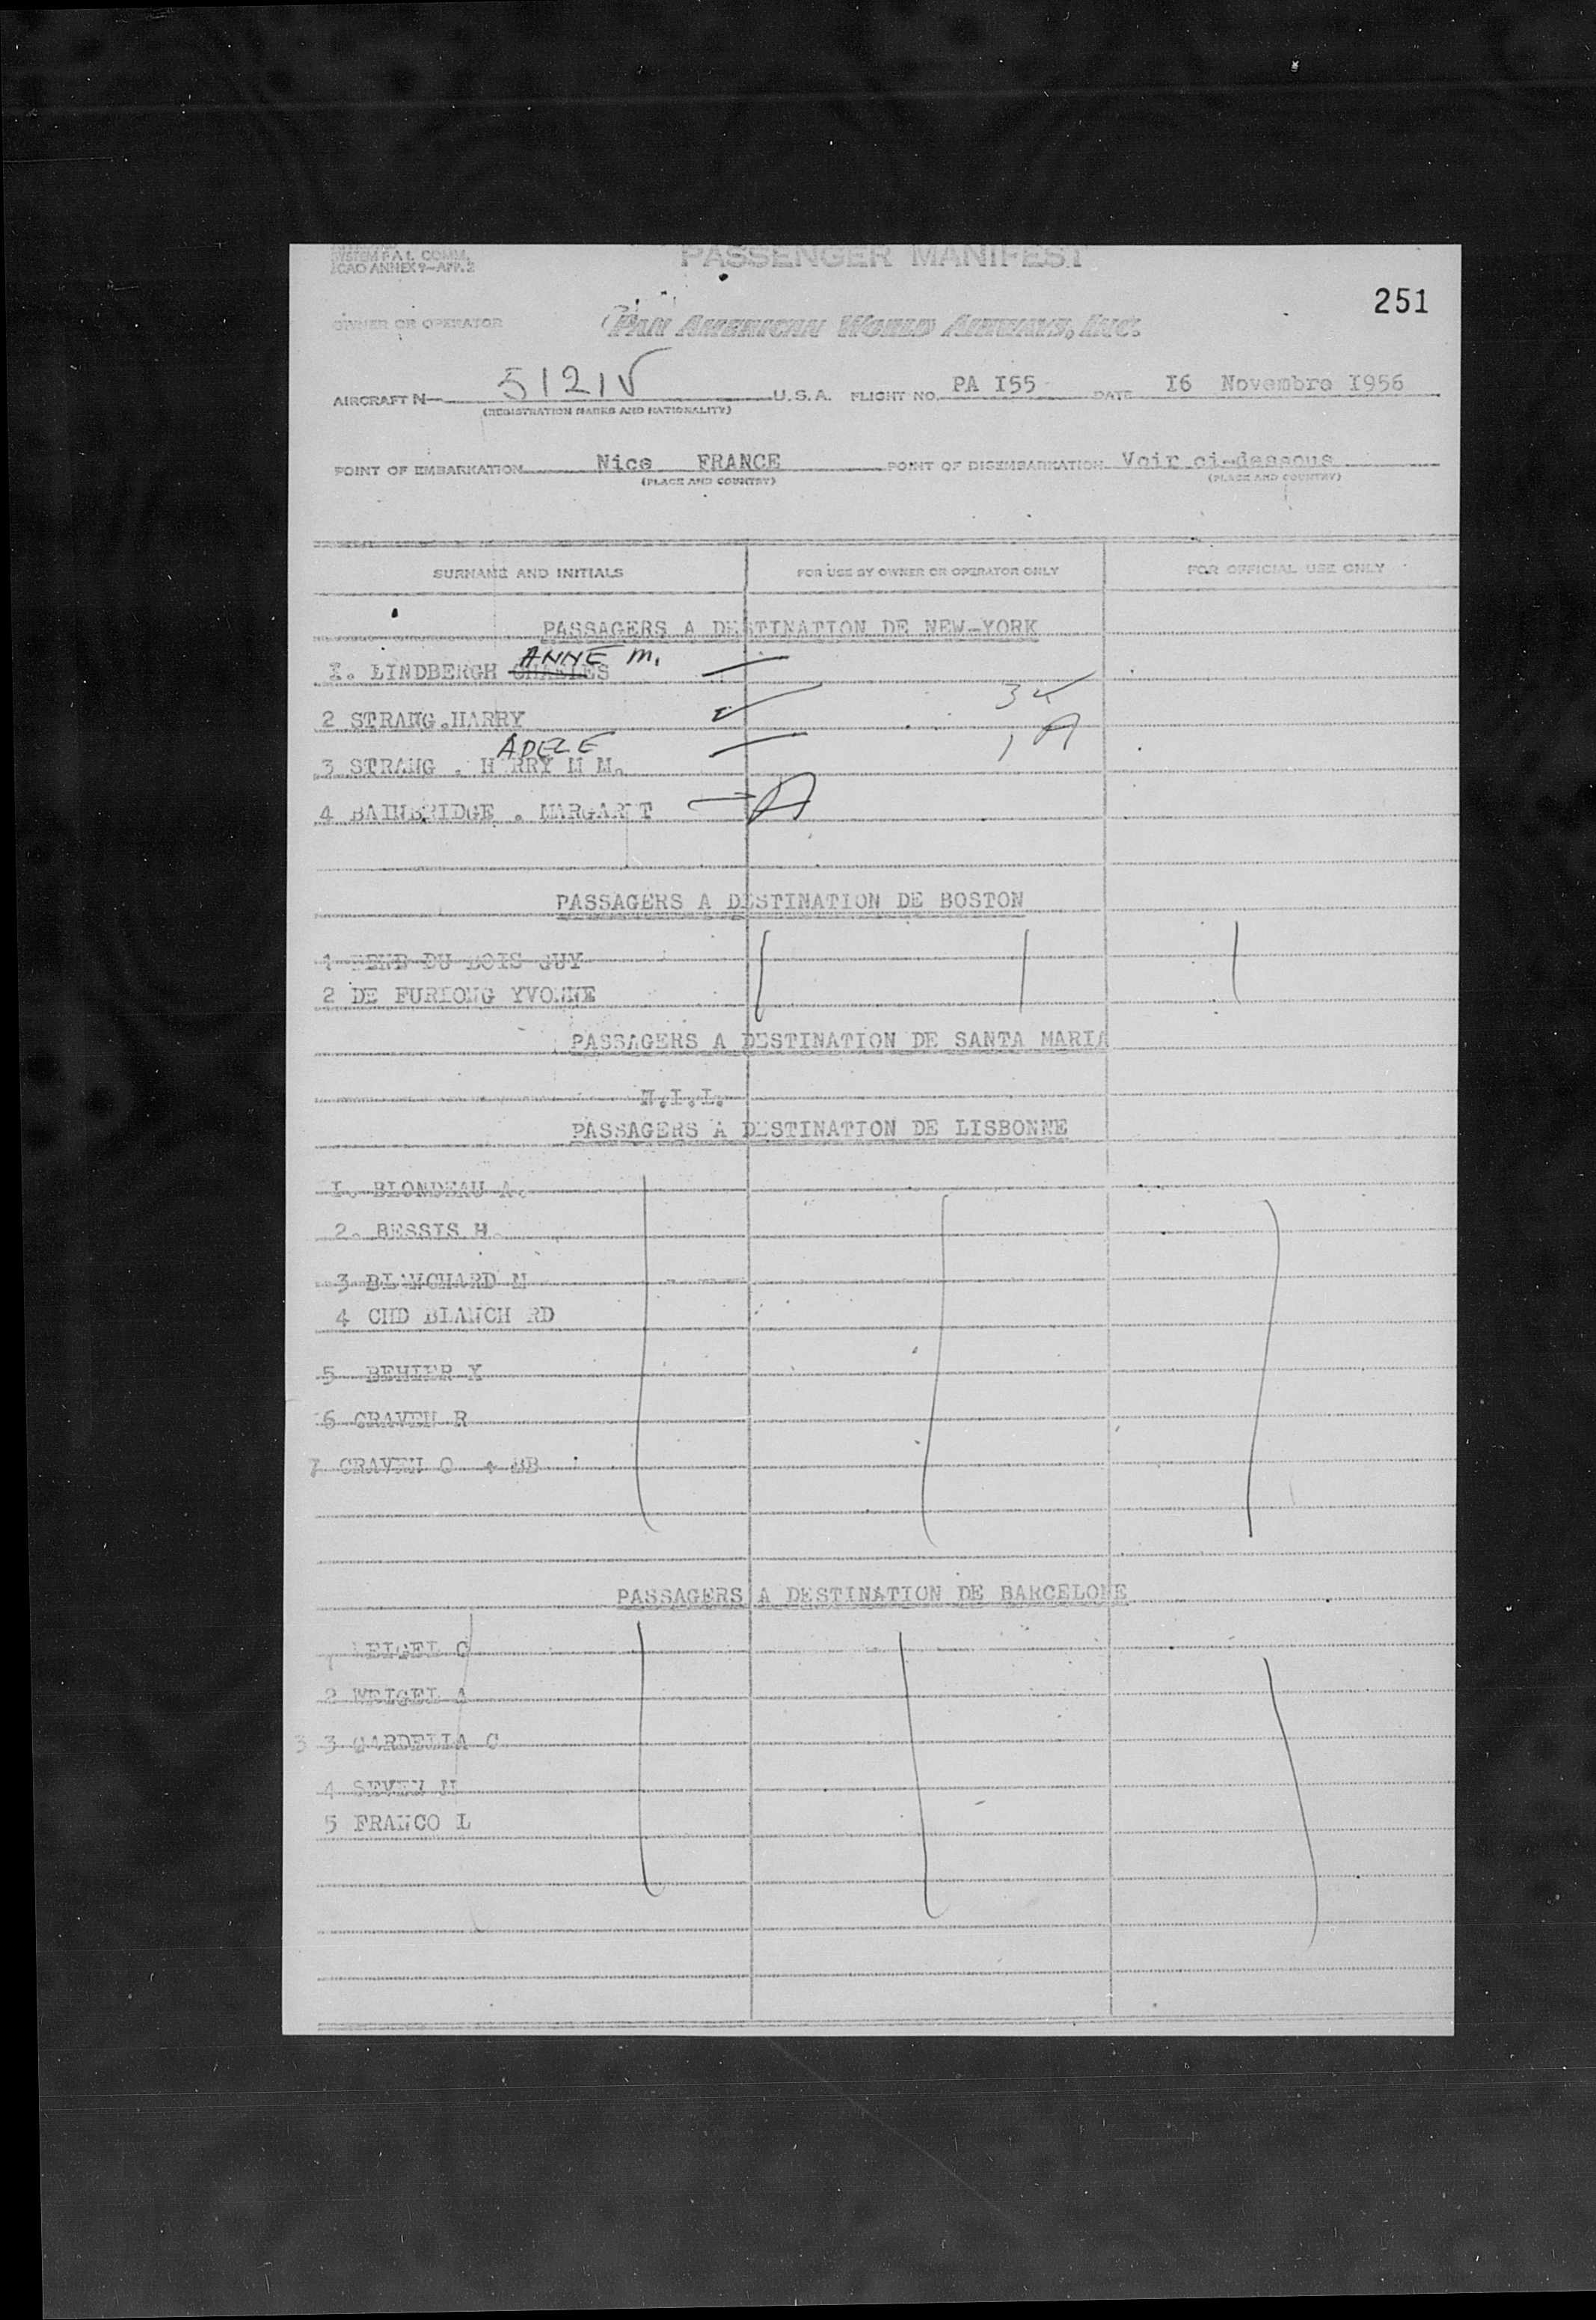 SYSTEM F.A.L. COMM.
ICAO ANNEX 9-APP. 2
PASSENGER MANIFEST
251
OWNER OR OPERATOR
PAN AMERICAN WORLD AIRWAYS, INC.
AIRCRAFT N- 5121V U.S.A. FLIGHT NO. PA I55 DATE I6 Novembre I956
(REGISTRATION MARKS AND NATIONALITY)
POINT OF EMBARKATION Nice FRANCE POINT OF DISEMBARKATION Voir ci-dessous
(PLACE AND COUNTRY) (PLACE AND COUNTRY)
SURNAME AND INITIALS FOR USE BY OWNER OR OPERATOR ONLY FOR OFFICIAL USE ONLY
PASSAGERS A DESTINATION DE NEW-YORK
ANNE M.
I. LINDBERGH CHARLES
2 STRANG.HARRY 3 ✓
ADELE 1 A
3 STRANG . H RRY M M.
4 BAINBRIDGE . MARGAR T A
PASSAGERS A DESTINATION DE BOSTON
1 PENE DU BOIS GUY
2 DE FURLONG YVONNE
PASSAGERS A DESTINATION DE SANTA MARIA
N.I.L.
PASSAGERS A DESTINATION DE LISBONNE
I. BLONDEAU A.
2. BESSIS H.
3 BLANCHARD M
4 CHD BLANCH RD
5 X
6 CRAVEN R
7 CRAVEN O + BB
PASSAGERS A DESTINATION DE BARCELONE
1 WEIGEL C
2 WEIGEL A
3 3 GARDELLA C
4 SEVEN M
5 FRANCO L